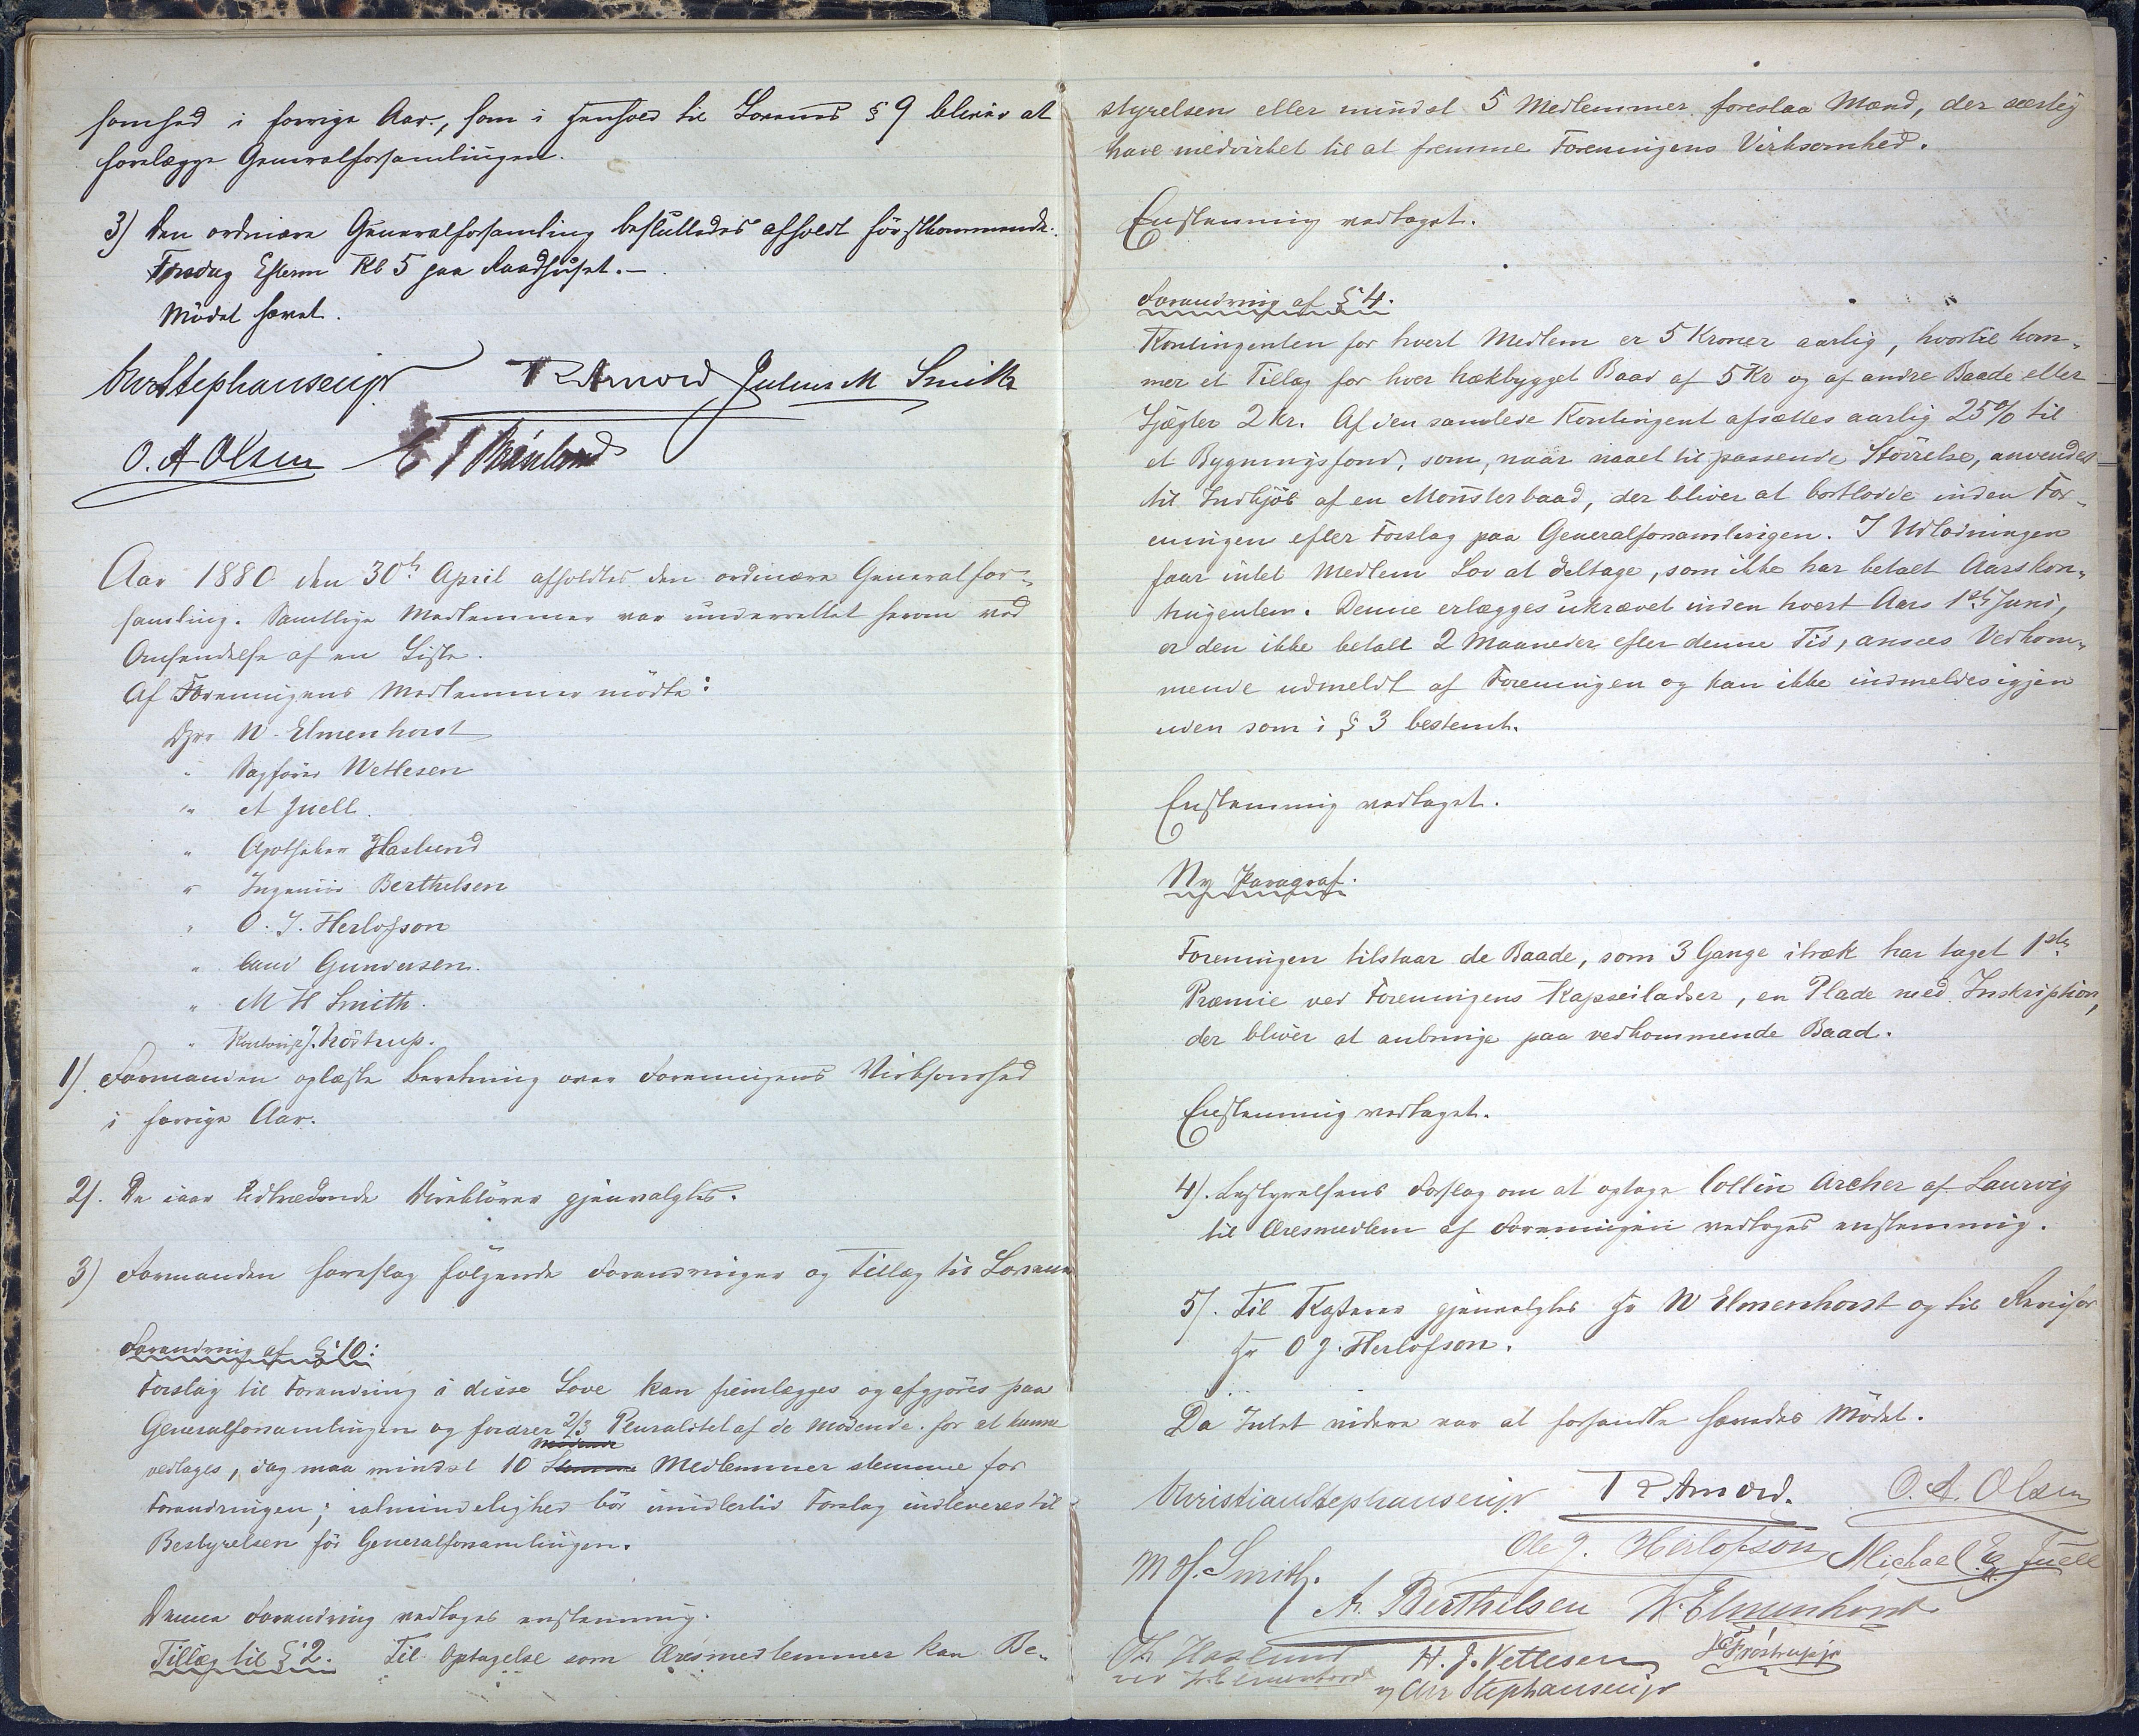 somhed i forrige Aar, som i Henhold til Lovenes § 9 bliver at
forelægge Generalforsamlingen.
3) Den ordinære Generalforsamling besluttedes afholdt förstkommende
Torsdag Efterm Kl 5 paa Raadhuset.—
Mödet hævet.
Chr Stephansen jr T R Arnord Julius M Smith
O. A Olsen
Aar 1880 den 30te April afholdtes den ordinære Generalfor-
samling. Samtlige Medlemmer var underrettet herom ved
Omsendelse af en Liste.
Af Foreningens Medlemmer mödte:
Hrr W. Elmenhorst
" Sagförer Wetlesen
" A Juell.
" Apotheker Haslund
" Ingeniör Berthelsen
" O. J. Herlofson
" Cand Gundersen.
" M H Smith.
" Fröstrup.
1). Formanden oplæste Beretning over Foreningens Virksomhed
i forrige Aar.
2). De iaar Udtrædende Direktörer gjenvalgtes.
3) Formanden foreslog fölgende Forandringer og Tillæg til Lovene
Forandring af § 10:
Forslag til Forandring i disse Love kan fremlægges og afgjöres paa
Generalforsamlingen og fordrer 2/3 Pluralitet af de Mödende for at kunne
mödende
vedtages, dog maa mindst 10 Stemme Medlemmer stemme for
Forandringen; ialmindelighed bör imidlertid Forslag indleveres til
Bestyrelsen för Generalforsamlingen.
Denne Forandring vedtoges enstemmig.
Tillæg til § 2. Til Optagelse som Æresmedlemmer kan Be-
styrelsen eller mindst 5 Medlemmer foreslaa Mænd, der særlig
have medvirket til at fremme Foreningens Virksomhed.
Enstemmig vedtaget.
Forandring af § 4.
Kontingenten for hvert Medlem er 5 Kroner aarlig, hvortil kom-
mer et Tillæg for hver hækbygget Baad af 5 Kr og af andre Baade eller
Sjægter 2 Kr. Af den samlede Kontingent afsættes aarlig 25% til
et Bygningsfond, som, naar naaet til passende Störrelse, anvendes
til Indkjöb af en Mönsterbaad, der bliver at bortlodde inden For-
eningen efter Forslag paa Generalforsamlingen. I Udlodningen
faar intet Medlem Lov at deltage, som ikke har betalt Aarskon-
tingenten. Denne erlægges ukrævet inden hvert Aars 1ste Juni,
er den ikke betalt 2 Maaneder efter denne Tid, ansees Vedkom-
mende udmeldt af Foreningen og kan ikke indmeldes igjen
uden som i § 3 bestemt.
Enstemmig vedtaget.
Ny Paragraf.
Foreningen tilstaar de Baade, som 3 Gange itræk har taget 1ste
Præmie ved Foreningens Kapseiladser, en Plade med Inskription,
der bliver at anbringe paa vedkommende Baad.
Enstemmig vedtaget.
4). Bestyrelsens Forslag om at optage Collin Archer af Laurvig
til Æresmedlem af Foreningen vedtoges enstemmig.
5). Til Kasserer gjenvalgtes Hr W Elmenhorst og til Revisor
Hr O J. Herlofson.
Da Intet videre var at forhandle hævedes Mödet.
Christian Stephansen jr T R Arnord. O. A. Olsen
M H. Smith. Ole J. Herlofson Michael Juell
A. Berthelsen W. Elmenhorst
Th Haslund H. J. Vetlesen Fröstrup jr
ved W. Elmenhorst v/ Chr Stephansen jr